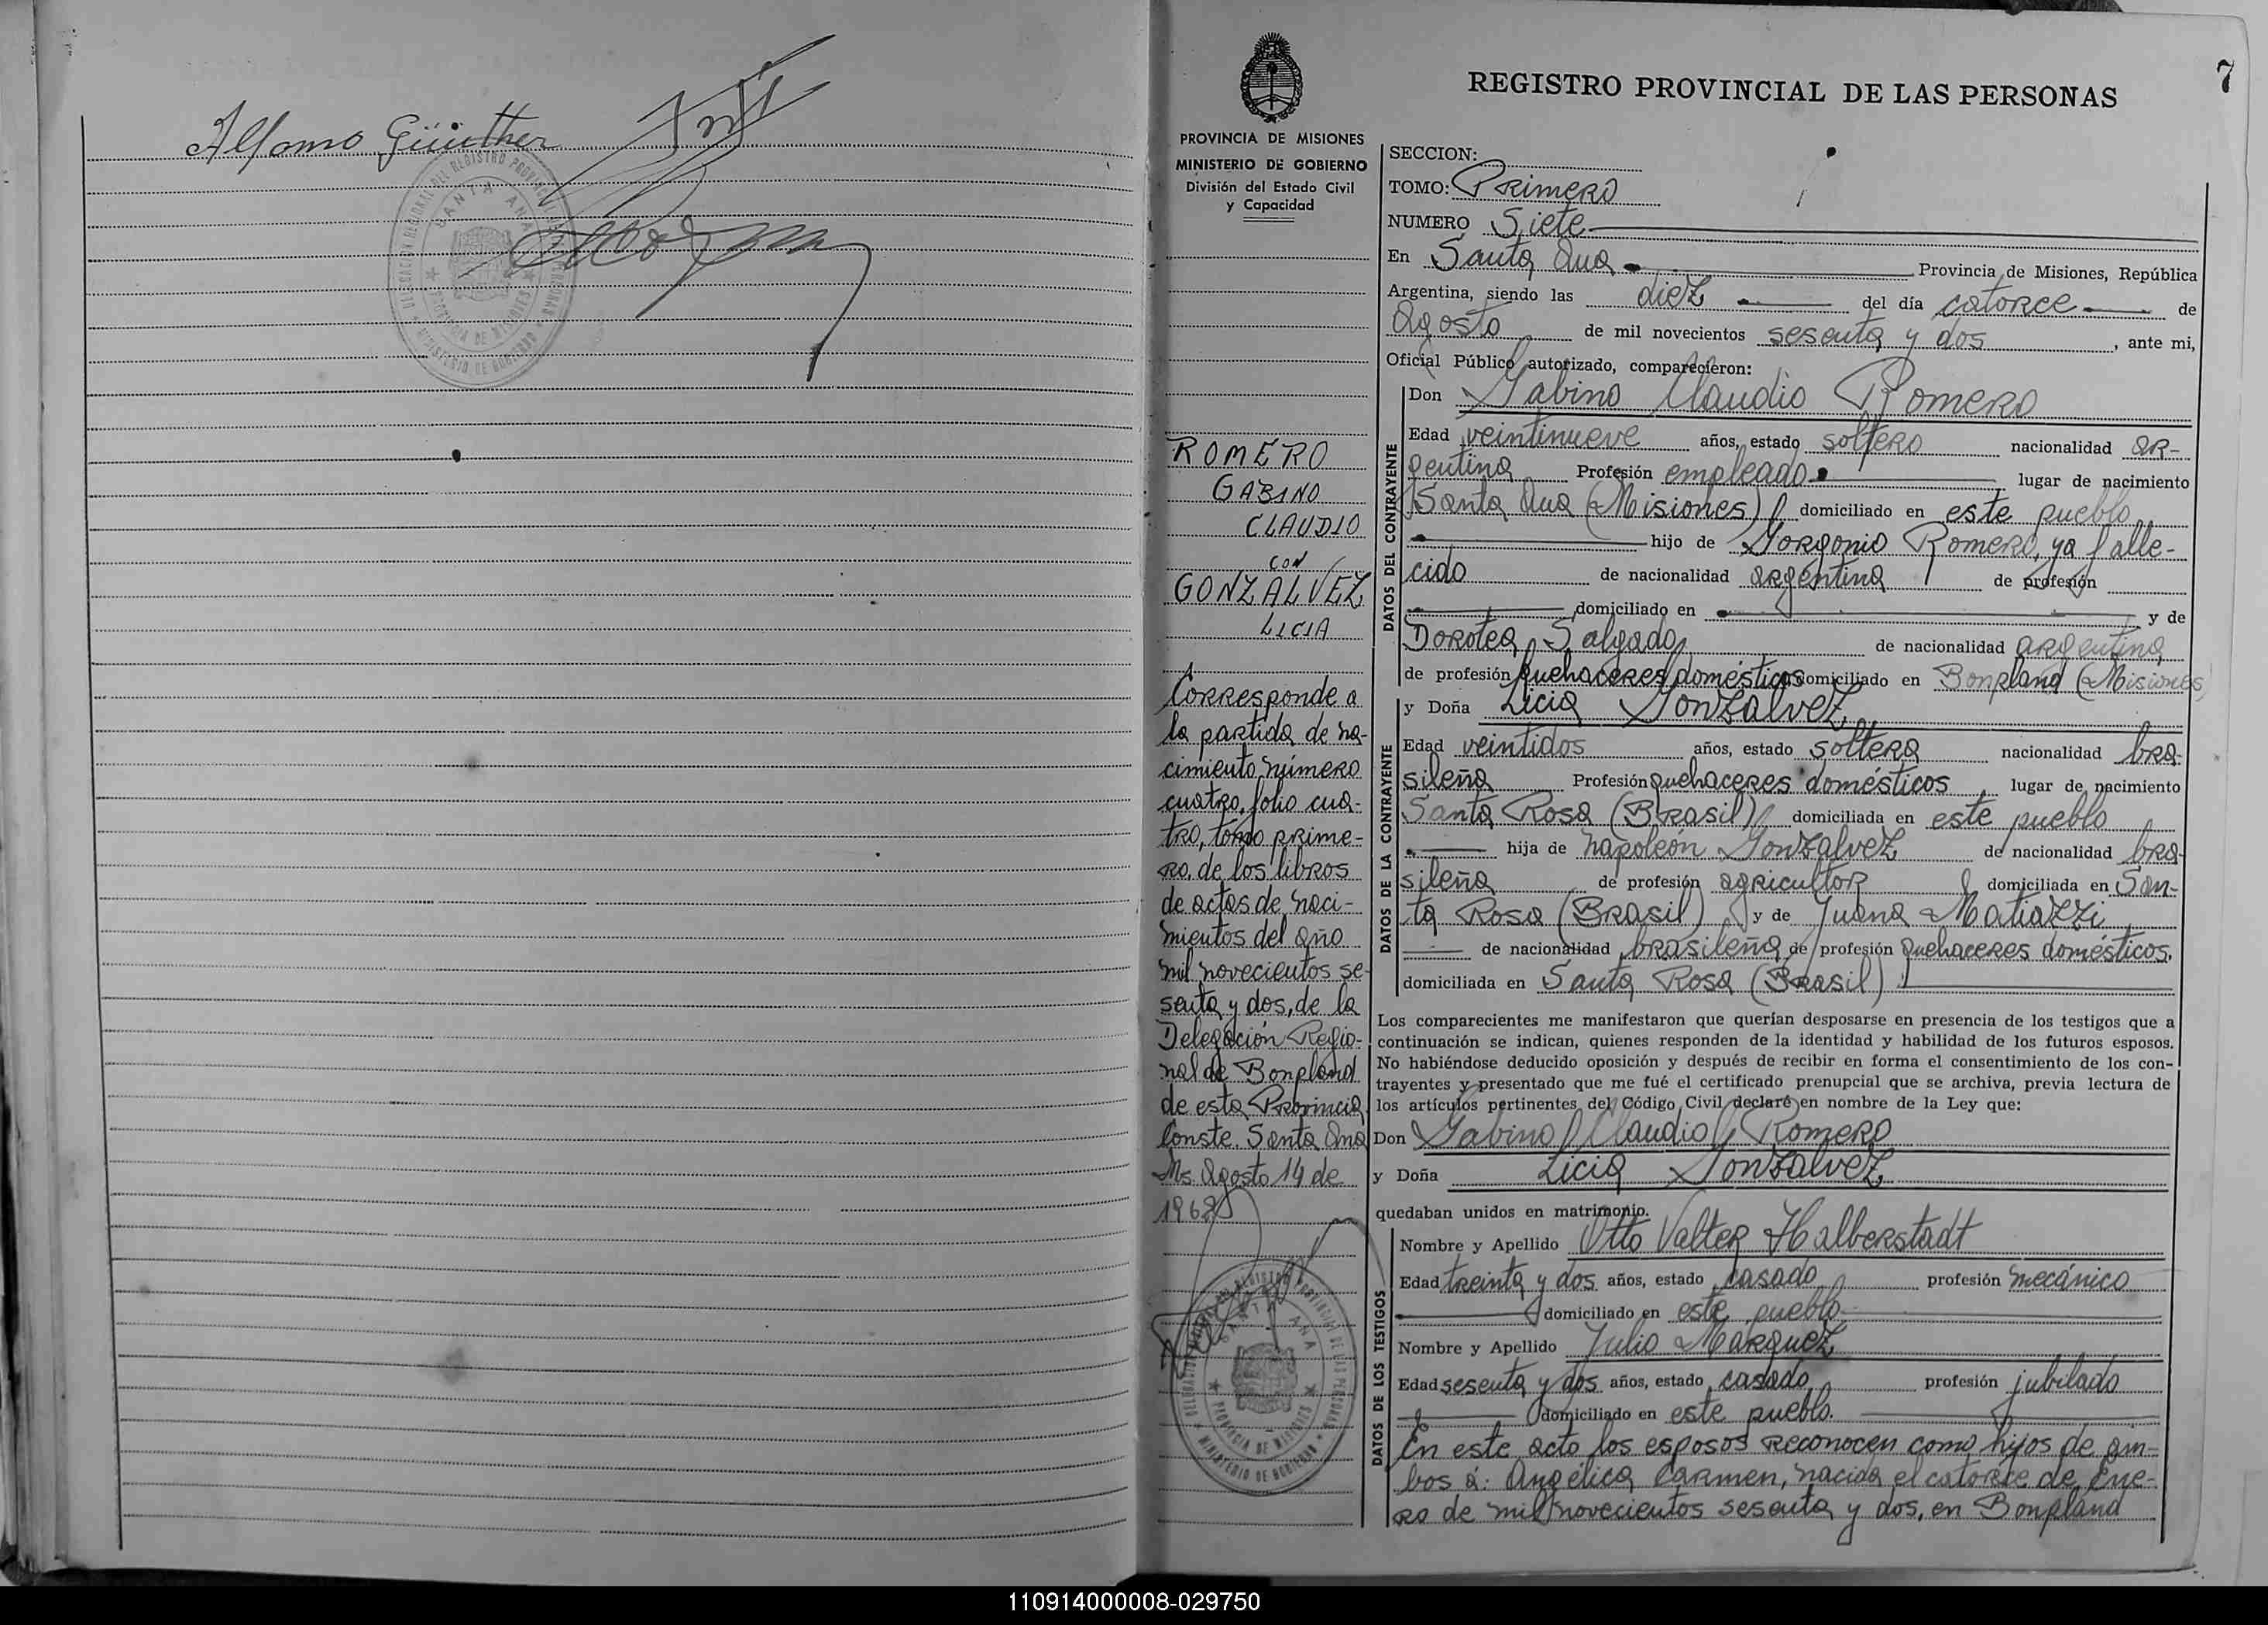 Alfonso Güinther
DELEGACION REGIONAL DEL REGISTRO PROVINCIAL DE LAS PERSONAS
SANTA ANA
PROVINCIA DE MISIONES
MINISTERIO DE GOBIERNO
7
REGISTRO PROVINCIAL DE LAS PERSONAS
PROVINCIA DE MISIONES
MINISTERIO DE GOBIERNO
División del Estado Civil
y Capacidad
ROMERO
GABINO
CLAUDIO
CON
GONZALVEZ
LICIA
Corresponde a
la partida de na-
cimiento número
cuatro, folio cua-
tro, tomo prime-
ro, de los libros
de actas de naci-
mientos del año
mil novecientos se-
senta y dos, de la
Delegación Regio-
nal de Bonpland
de esta Provincia
Conste. Santa Ana
Ms. Agosto 14 de
1962
DELEGACION REGIONAL DEL REGISTRO PROVINCIAL DE LAS PERSONAS
SANTA ANA
PROVINCIA DE MISIONES
MINISTERIO DE GOBIERNO
SECCION:
TOMO: Primero
NUMERO Siete
En Santa Ana Provincia de Misiones, República
Argentina, siendo las diez del día catorce de
Agosto de mil novecientos sesenta y dos, ante mi,
Oficial Público autorizado, comparecieron:
DATOS DEL CONTRAYENTE
Don Gabino Claudio Romero
Edad veintinueve años, estado soltero nacionalidad ar-
gentina Profesión empleado lugar de nacimiento
Santa Ana (Misiones) domiciliado en este pueblo
hijo de Gorgonio Romero, ya falle-
cido de nacionalidad argentina de profesión
domiciliado en y de
Dorotea Salgado de nacionalidad argentina
de profesión quehaceres domésticos domiciliado en Bonpland (Misiones)
DATOS DE LA CONTRAYENTE
y Doña Licia Gonzalvez
Edad veintidos años, estado soltera nacionalidad bra-
sileña Profesión quehaceres domésticos lugar de nacimiento
Santa Rosa (Brasil) domiciliada en este pueblo
hija de Napoleón Gonzalvez de nacionalidad bra-
sileña de profesión agricultor domiciliada en San-
ta Rosa (Brasil) y de Juana Matiazzi
de nacionalidad brasileña de profesión quehaceres domésticos.
domiciliada en Santa Rosa (Brasil)
Los comparecientes me manifestaron que querían desposarse en presencia de los testigos que a
continuación se indican, quienes responden de la identidad y habilidad de los futuros esposos.
No habiéndose deducido oposición y después de recibir en forma el consentimiento de los con-
trayentes y presentado que me fué el certificado prenupcial que se archiva, previa lectura de
los artículos pertinentes del Código Civil declaré en nombre de la Ley que:
Don Gabino Claudio Romero
y Doña Licia Gonzalvez
quedaban unidos en matrimonio.
DATOS DE LOS TESTIGOS
Nombre y Apellido Otto Valter Halberstadt
Edad treinta y dos años, estado casado profesión mecánico
domiciliado en este pueblo
Nombre y Apellido Julio Marquez
Edad sesenta y dos años, estado casado profesión jubilado
domiciliado en este pueblo.
En este acto los esposos reconocen como hijos de am-
bos á: Angélica Carmen, nacida el catorce de Ene-
ro de mil novecientos sesenta y dos, en Bonpland
110914000008-029750